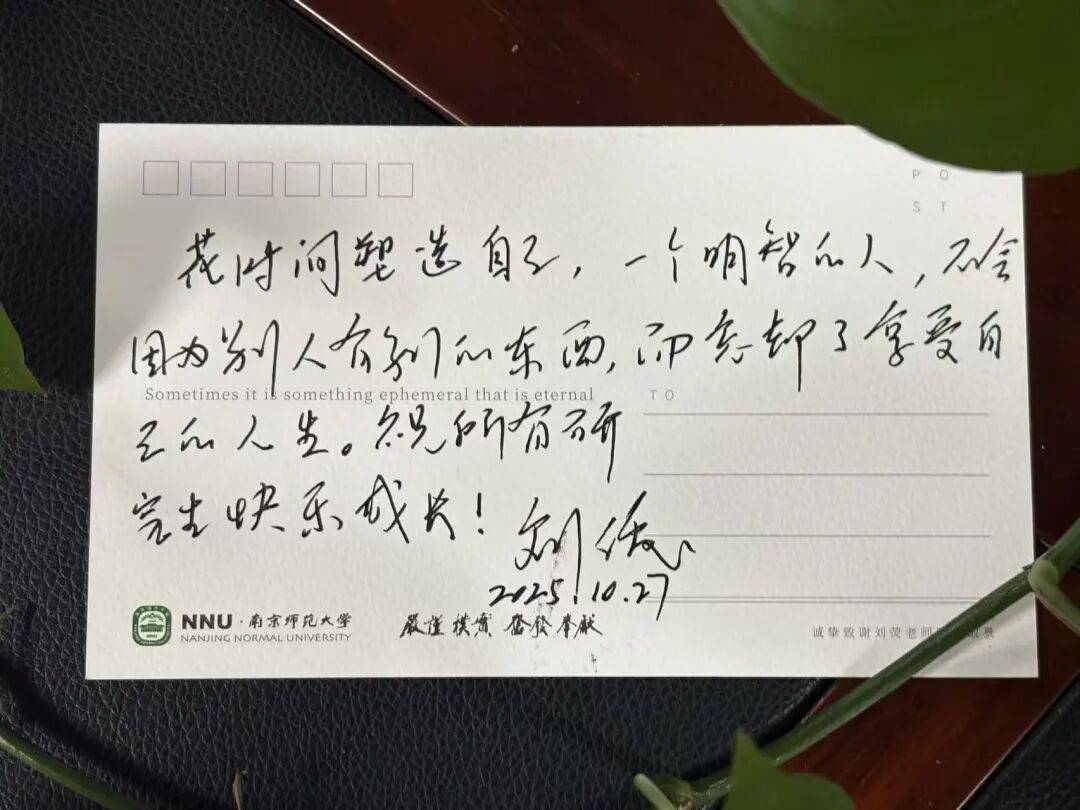 P O
S T
花时间塑造自己，一个明智的人，不会
因为别人有别的东西，而忘却了享受自
Sometimes it is something ephemeral that is eternal
TO
己的人生。祝所有研
究生快乐成长！
刘
2025.10.27
NNU·南京师范大学
NANJING NORMAL UNIVERSITY
嚴謹樸實 奮發奉献
诚挚致谢刘荧老师